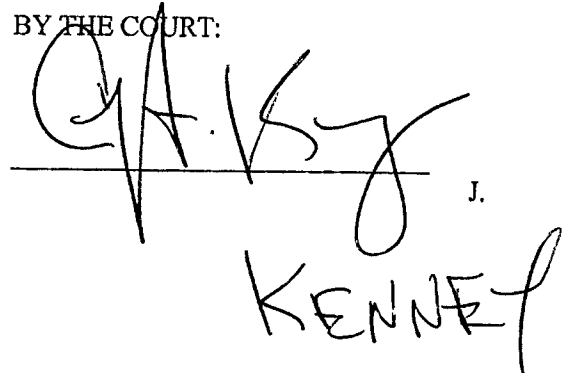 BY THE COURT:
J.
KENNEY